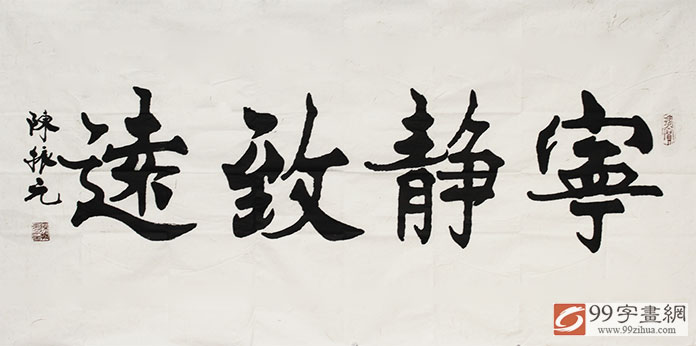 寧静致遠
陳振元
99字畫網
www.99zihua.com